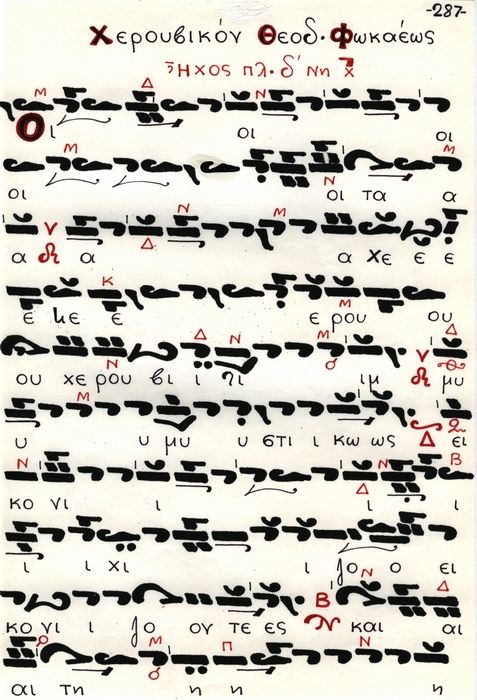 -287-
Χερουβικόν Θεοδ. Φωκαέως
Ἦχος πλ. δ΄ Νη
Οι οι οι
οι οι τα α
α α α χε ε ε
ε κε ε ε ρου ου
ου χε ρου βι ι γι ιμ μυ
υ υ μυ υ στι ι κω ως ει
κο νι ι ι ι
ι ι χι ι ζο ο ει
κο νι ι ζο ον τε ες και αι
αι τη η η η